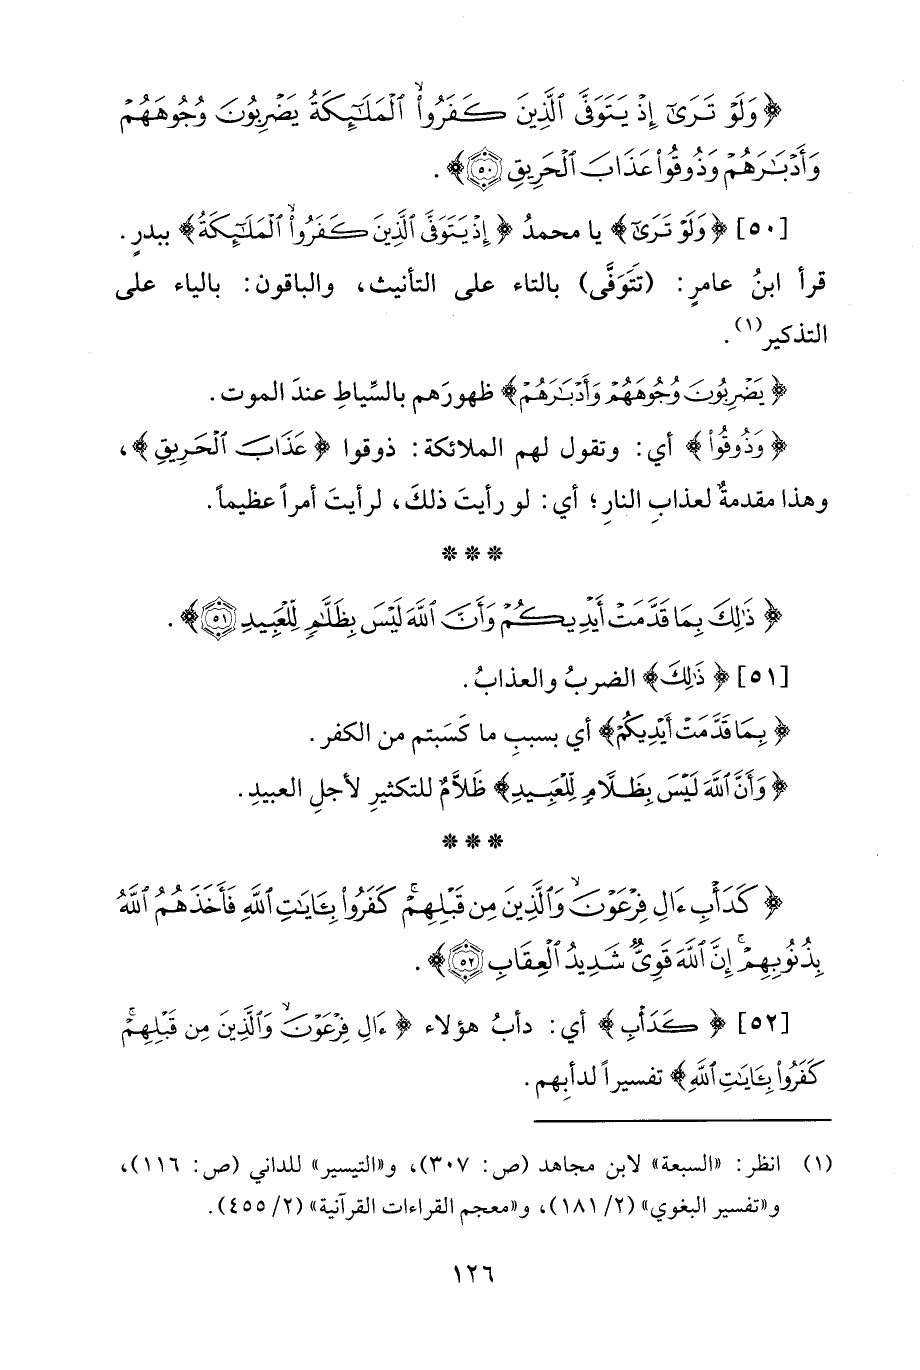 ﴿وَلَوْ تَرَىٰٓ إِذْ يَتَوَفَّى ٱلَّذِينَ كَفَرُوا۟ ۙ ٱلْمَلَـٰٓئِكَةُ يَضْرِبُونَ وُجُوهَهُمْ
وَأَدْبَـٰرَهُمْ وَذُوقُوا۟ عَذَابَ ٱلْحَرِيقِ ۝٥٠﴾ .
[٥٠] ﴿وَلَوْ تَرَىٰٓ﴾ يا محمدُ ﴿إِذْ يَتَوَفَّى ٱلَّذِينَ كَفَرُوا۟ ۙ ٱلْمَلَـٰٓئِكَةُ﴾ ببدرٍ .
قرأ ابنُ عامرٍ: (تَتَوَفَّى) بالتاء على التأنيث، والباقون: بالياء على
التذكير(١) .
﴿يَضْرِبُونَ وُجُوهَهُمْ وَأَدْبَـٰرَهُمْ﴾ ظهورَهم بالسِّياطِ عندَ الموت .
﴿وَذُوقُوا۟﴾ أي: وتقول لهم الملائكة: ذوقوا ﴿عَذَابَ ٱلْحَرِيقِ﴾،
وهذا مقدمةٌ لعذابِ النارِ؛ أي: لو رأيتَ ذلكَ، لرأيتَ أمراً عظيماً .
* * *
﴿ذَٰلِكَ بِمَا قَدَّمَتْ أَيْدِيكُمْ وَأَنَّ ٱللَّهَ لَيْسَ بِظَلَّـٰمٍ لِّلْعَبِيدِ ۝٥١﴾ .
[٥١] ﴿ذَٰلِكَ﴾ الضربُ والعذابُ .
﴿بِمَا قَدَّمَتْ أَيْدِيكُمْ﴾ أي بسببِ ما كَسَبتم من الكفر .
﴿وَأَنَّ ٱللَّهَ لَيْسَ بِظَلَّامٍ لِّلْعَبِيدِ﴾ ظَلاَّمٌ للتكثيرِ لأجلِ العبيدِ .
* * *
﴿كَدَأْبِ ءَالِ فِرْعَوْنَ ۙ وَٱلَّذِينَ مِن قَبْلِهِمْ ۚ كَفَرُوا۟ بِـَٔايَـٰتِ ٱللَّهِ فَأَخَذَهُمُ ٱللَّهُ
بِذُنُوبِهِمْ ۚ إِنَّ ٱللَّهَ قَوِىٌّ شَدِيدُ ٱلْعِقَابِ ۝٥٢﴾ .
[٥٢] ﴿كَدَأْبِ﴾ أي: دأبُ هؤلاء ﴿ءَالِ فِرْعَوْنَ ۙ وَٱلَّذِينَ مِن قَبْلِهِمْ ۚ
كَفَرُوا۟ بِـَٔايَـٰتِ ٱللَّهِ﴾ تفسيراً لدأبِهم .
(١) انظر: «السبعة» لابن مجاهد (ص: ٣٠٧)، و«التيسير» للداني (ص: ١١٦)،
و«تفسير البغوي» (٢/ ١٨١)، و«معجم القراءات القرآنية» (٢/ ٤٥٥) .
١٢٦